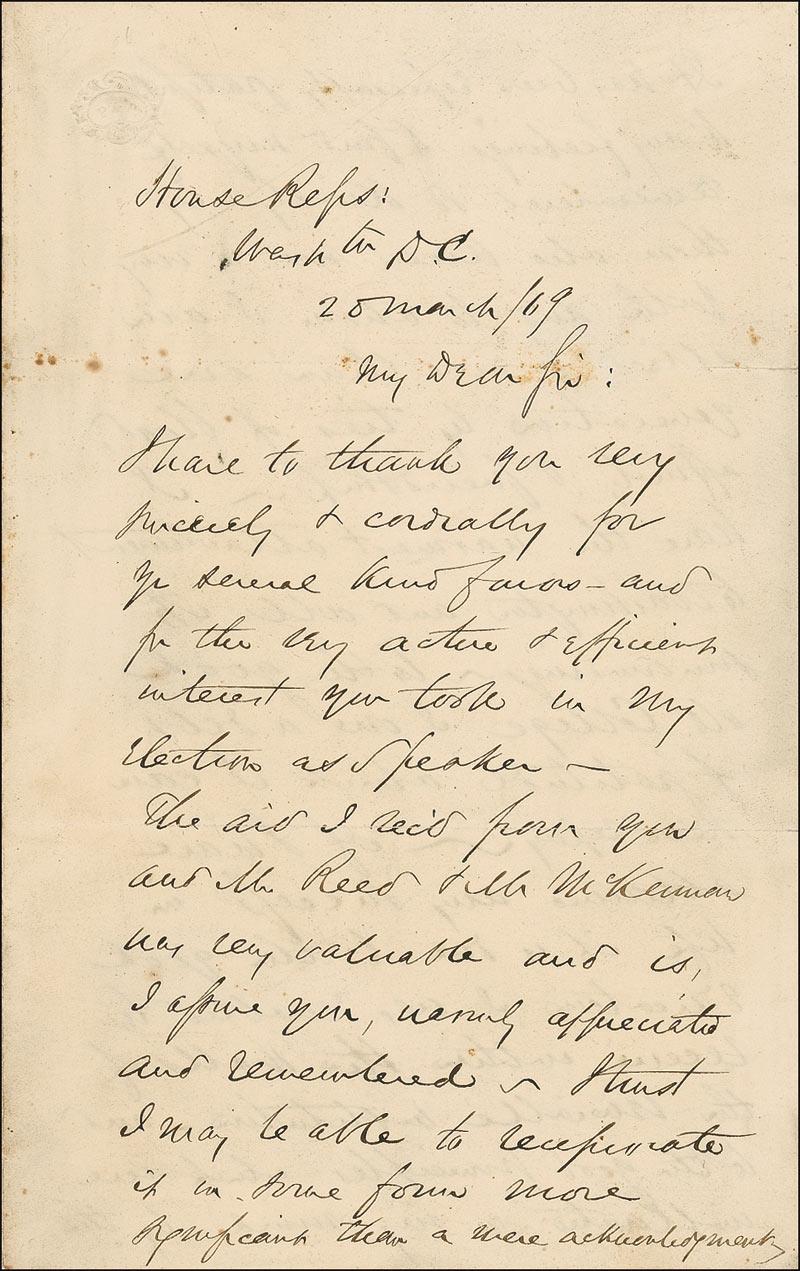 House Reps:
Washtn D.C.
20 March /69
My Dear Sir:
I have to thank you very
sincerely & cordially for
yr several kind favors – and
for the very active & efficient
interest you took in my
Election as Speaker –
The aid I rec'd from you
and Mr Reed & Mr McKennan
was very valuable and is,
I assure you, warmly appreciated
and remembered – I trust
I may be able to reciprocate
it in some form more
significant than a mere acknowledgment